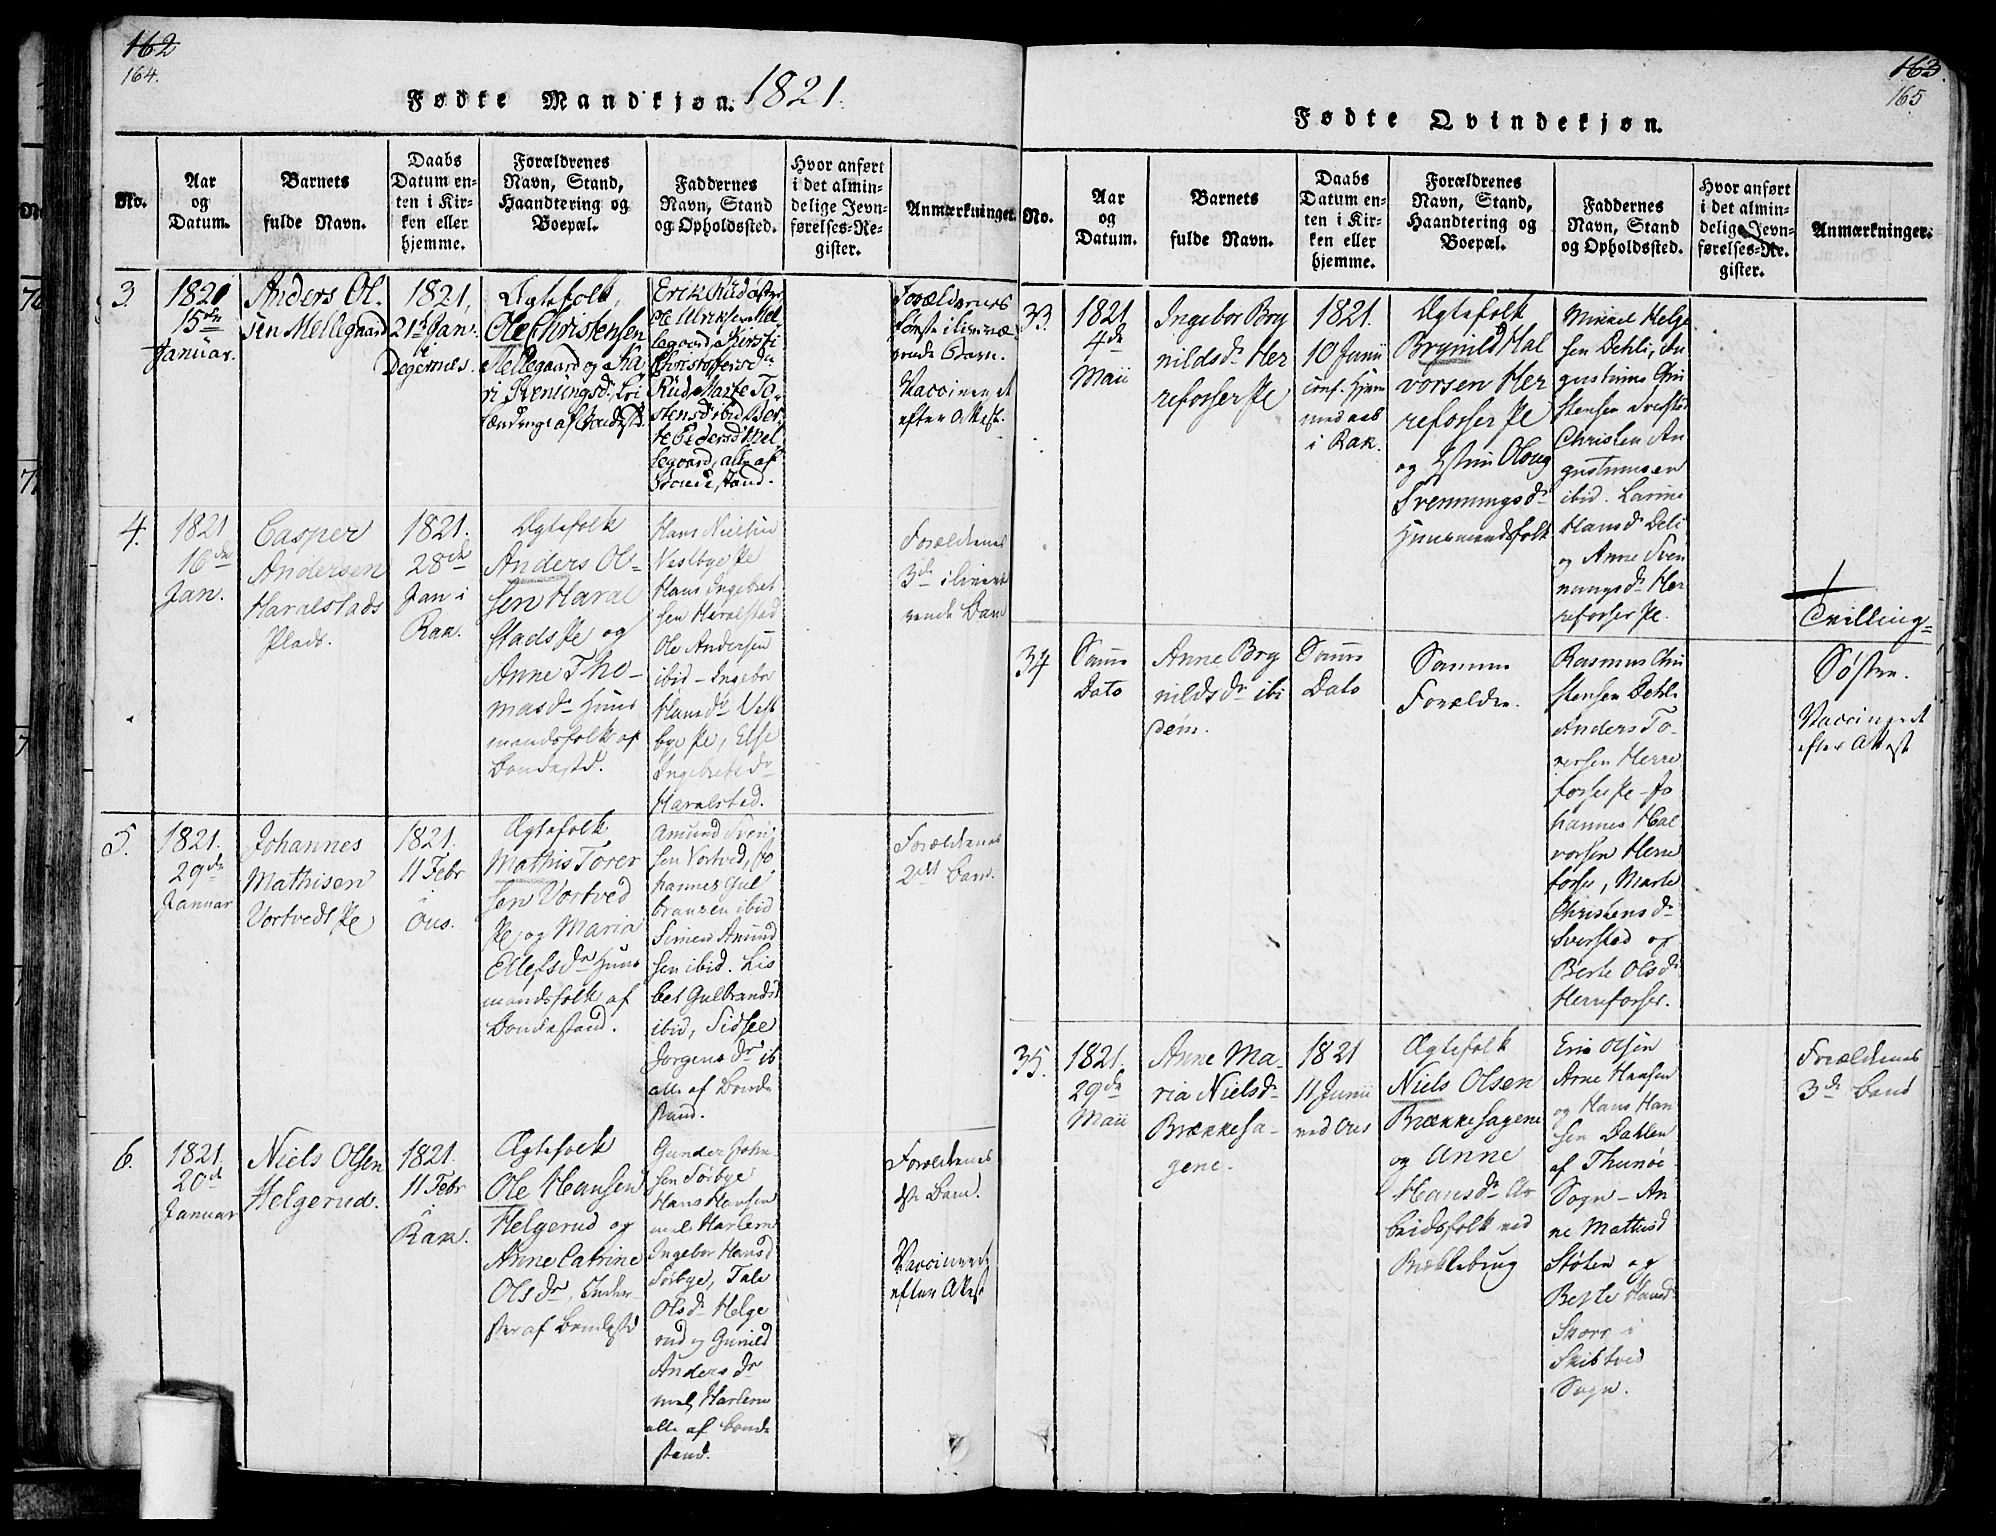 162
164.
Fødte Mandkjøn. 1821.
No.
Aar
og
Datum.
Barnets
fulde Navn.
Daabs
Datum en-
ten i Kir-
ken eller
hjemme.
Forældrenes
Navn, Stand,
Haandtering og
Boepæl.
Faddernes
Navn, Stand
og Opholdssted.
Hvor anført
i det almin-
delige Jevn-
førelses-Re-
gister.
Anmærkninger.
3
1821
15de
Januar.
Anders Ol-
sen Mellegaard
1821.
21de Jan.
Degernes.
Ægtefolk,
Ole Christensen
Mellegaard og Ka-
ri Svenningsd.
af Bondestd.
Erik Rud
Ole Ulriksen Mel-
legaard, Kirsti
Christophersdr
Rud, Marte To-
stensd. ibid, Ber-
te Pedersd. Mel-
legaard, alle af
Bondestand.
Forældrenes
første
Barn.
Vaccineret
efter Attest.
4.
1821
16de
Jan.
Casper
Andersen
Haralstads
Plads.
1821.
28de
Jan i
Rak.
Ægtefolk
Anders Ol-
sen Haral
stads Pe og
Anne Tho-
masdr Huus
mandsfolk af
Bondestd.
Hans Nielsen
Vestbye Pe
Hans Ingebret
sen Haralstad
Ole Andersen
ibid - Ingebor
Hansdr Vest
bye Pe, Else
Ingebretsdr
Haralstad.
Forældrenes
3de i live væ
rende Barn
5.
1821.
29de
Januar
Johannes
Mathisen
Vortvedt Pe
1821.
11 Febr
i
Ous.
Ægtefolk
Mathis Torer
sen Vortved
Pe og Maria
Ellefsdr Huus
mandsfolk af
Bondestand.
Amund Sven
sen Vortved, Jo
hannes Gul
bransen ibid
Simen Amund
sen ibid. Lis
bet Gulbrandsd
ibid, Sidsee
Jorgensdr ib
alle af Bonde
stand.
Forældrenes
2det Barn.
6.
1821.
20de
Januar
Niels Olsen
Helgerud.
1821.
11 Febr
i
Rak.
Ægtefolk
Ole Hansen
Helgerud og
Anne Catrine
Olsdr, Inder-
ster af Bondestd
Gunder John
sen Sørbye
Hans Hansen
Harlem
Ingebor Hansd
Sørbye, Tale
Olsdr Helge
rud og Gunild
Andersdr
Harlem
alle af Bonde
stand.
Forældrenes
Barn.
Vaccineret
efter Attest
163.
165
Fødte Qvindekjøn.
No.
Aar
og
Datum.
Barnets
fulde Navn.
Daabs
Datum en-
ten i Kir-
ken eller
hjemme.
Forældrenes
Navn, Stand,
Haandtering og
Boepæl.
Faddernes
Navn, Stand
og Opholdssted.
Hvor anført
i det almin-
delige Jevn-
førelses-Re-
gister.
Anmærkninger.
33.
1821
4de
Maii
Ingebor Bry
nildsdr Her
refosser Pe
1821.
10 Junii
conf. Hjem
medaab
i Rak.
Ægtefolk
Brynild Hal
vorsen Her
refosser Pe
og
Svenningsdr
Huusmandsfolk
Mikkel Helge
sen Dehli, Au
gustinus Chri
stensen Sverstad
Christen Au
gustinusen
ibid. Karine
Hansdr Deli
og Anne Sven
ningsdr Her
refosser Pe.
Tvilling-
34
Samme
Dato
Anne Bry
nildsdr ibi
dem.
Samme
Dato
Samme
Forældre.
Rasmus Chri
stensen Dehli
Anders To-
rersen Herre
fosser Pe - Jo
hannes Hal
vorsen Herre
fosser, Marte
Christensdr
Sverstad og
Berte Olsdr
Herrefosser.
Søstre.
Vaccineret
efter Attest
35.
1821.
29de
Maii
Anne Ma-
ria Nielsdr
Brækkesa-
gene.
1821
11 Junii
ved Ous
Ægtefolk
Niels Olsen
Brækkesagene
og Anne
Hansdr Ar
beidsfolk ved
Brækkebrug
Eric Olsen
Arne Hansen
og Hans Han
sen Dahlen
af Thunøe
Sogn - An
ne Mathisd
Støten og
Berte Hansdr
Skorr i
Skibtved
Sogn.
Forældrenes
3de Barn